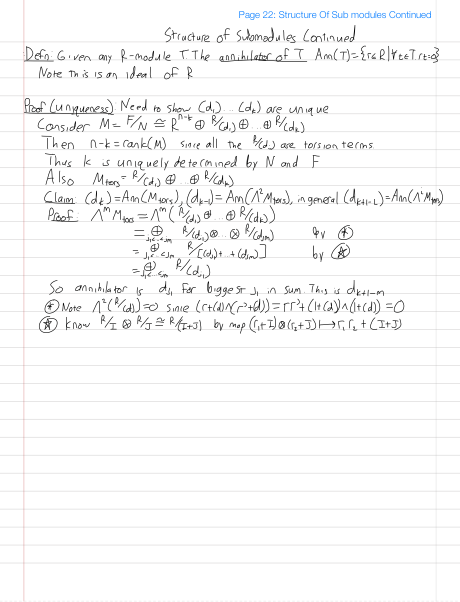 Page 22: Structure Of Sub modules Continued
Structure of Submodules Continued
Defn: Given any R-module T The annihilator of T Ann(T)={r∈R|∀t∈T.rt=0}
Note this is an ideal of R
Proof (uniqueness) Need to show (d₁)...(dₖ) are unique
Consider M = F/N ≅ Rⁿ⁻ᵏ ⊕ R/(d₁) ⊕ … ⊕ R/(dₖ)
Then n-k = rank(M) since all the R/(dᵢ) are torsion terms.
Thus k is uniquely determined by N and F
Also M_tors = R/(d₁) ⊕ … ⊕ R/(dₖ)
Claim: (dₖ) = Ann(M_tors), (dₖ₋₁) = Ann(Λ²M_tors), in general (dₖ₊₁₋ᵢ) = Ann(ΛⁱM_tors)
Proof: Λᵐ M_tors = Λᵐ(R/(d₁) ⊕ … ⊕ R/(dₖ))
= ⊕_{j₁<..<jₘ} R/(d_{j₁}) ⊗ … ⊗ R/(d_{jₘ}) by (*)
= ⊕_{j₁<..<jₘ} R/[(d_{j₁})+..+(d_{jₘ})] by (☆)
= ⊕_{j₁<..<jₘ} R/(d_{j₁})
So annihilator is d_{j₁} for biggest j₁ in sum. This is dₖ₊₁₋ₘ
(*) Note Λ²(R/(d)) = 0 since (r+(d))∧(r'+(d)) = rr'(1+(d))∧(1+(d)) = 0
(☆) Know R/I ⊗ R/J ≅ R/(I+J) by map (r₁+I)⊗(r₂+J) ↦ r₁r₂ + (I+J)